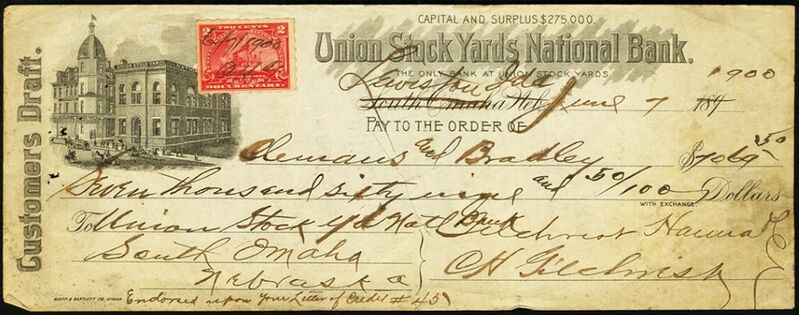 CAPITAL AND SURPLUS $275,000.
Union Stock Yards National Bank.
THE ONLY BANK AT UNION STOCK YARDS
TWO CENTS
2 2
DOCUMENTARY.
6/7/1900
Customers Draft.
Lewiston 1900
South Omaha, Neb. June 7 189
PAY TO THE ORDER OF
Clemans and Bradley $7069 50
Seven thousand sixty nine and 50/100 Dollars
WITH EXCHANGE
To Union Stock Yds Natl Bank Gilchrist
South Omaha C H Gilchrist
Nebraska
Endorsed upon your Letter of Credit # 45